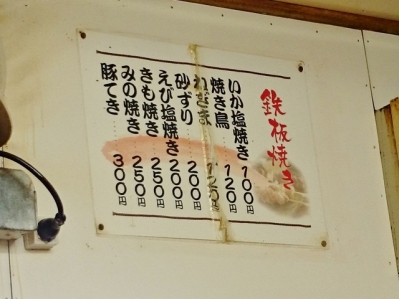 鉄板焼き
いか塩焼き 100円
焼き鳥 120円
ねぎま 120円
砂ずり 200円
えび塩焼き 200円
きも焼き 250円
みの焼き 250円
豚てき 300円